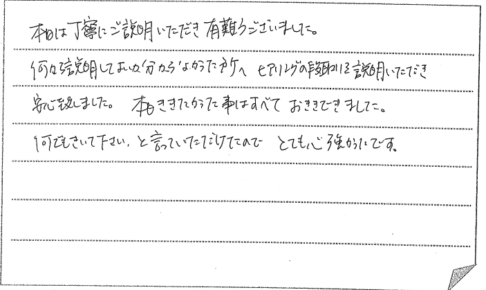 本日は丁寧にご説明いただき有難うございました。
何から説明してよいか分からなかった所へ ヒアリングの段階から説明いただき
安心致しました。 本日ききたかった事はすべて おききできました。
何でもきいて下さい、と言っていただけたので とても心強かったです。